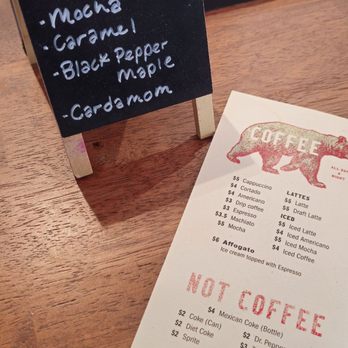 - Mocha
- Caramel
- Black Pepper
Maple
- Cardamom
COFFEE
$5 Cappuccino
$4 Cortado
$4 Americano
$3 Drip coffee
$3 Espresso
$3.5 Machiato
$5 Mocha
LATTES
$5 Latte
$5 Draft Latte
ICED
$5 Iced Latte
$4 Iced Americano
$5 Iced Mocha
$4 Iced Coffee
$6 Affogato
Ice cream topped with Espresso
NOT COFFEE
$4 Mexican Coke (Bottle)
$2 Coke (Can)
$2 Diet Coke
$2 Sprite
$2 Dr. Peppe